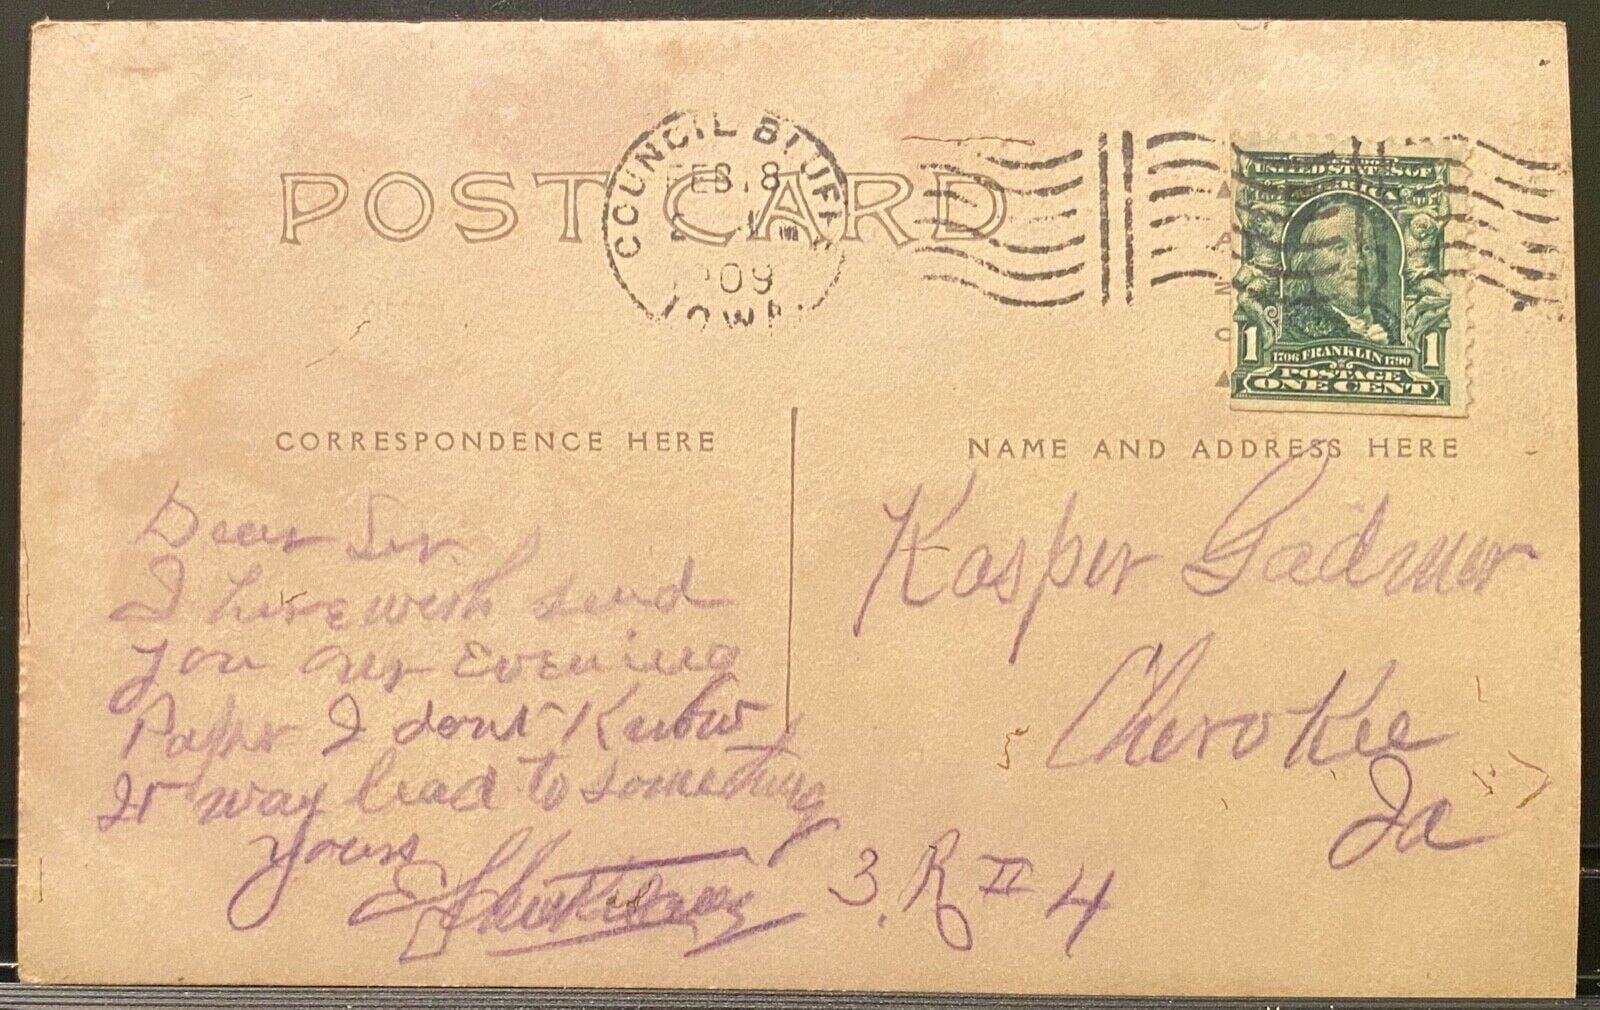 POST CARD
COUNCIL BLUFF
FEB. 8
1909
IOWA
UNITED STATES OF AMERICA
1706 FRANKLIN 1790
POSTAGE
1 ONE CENT 1
CORRESPONDENCE HERE
NAME AND ADDRESS HERE
Dear Sir
I herewith send
you our Evening
Paper I dont Know
It may lead to something
yours
Kasper
Cherokee
Ia
R # 4